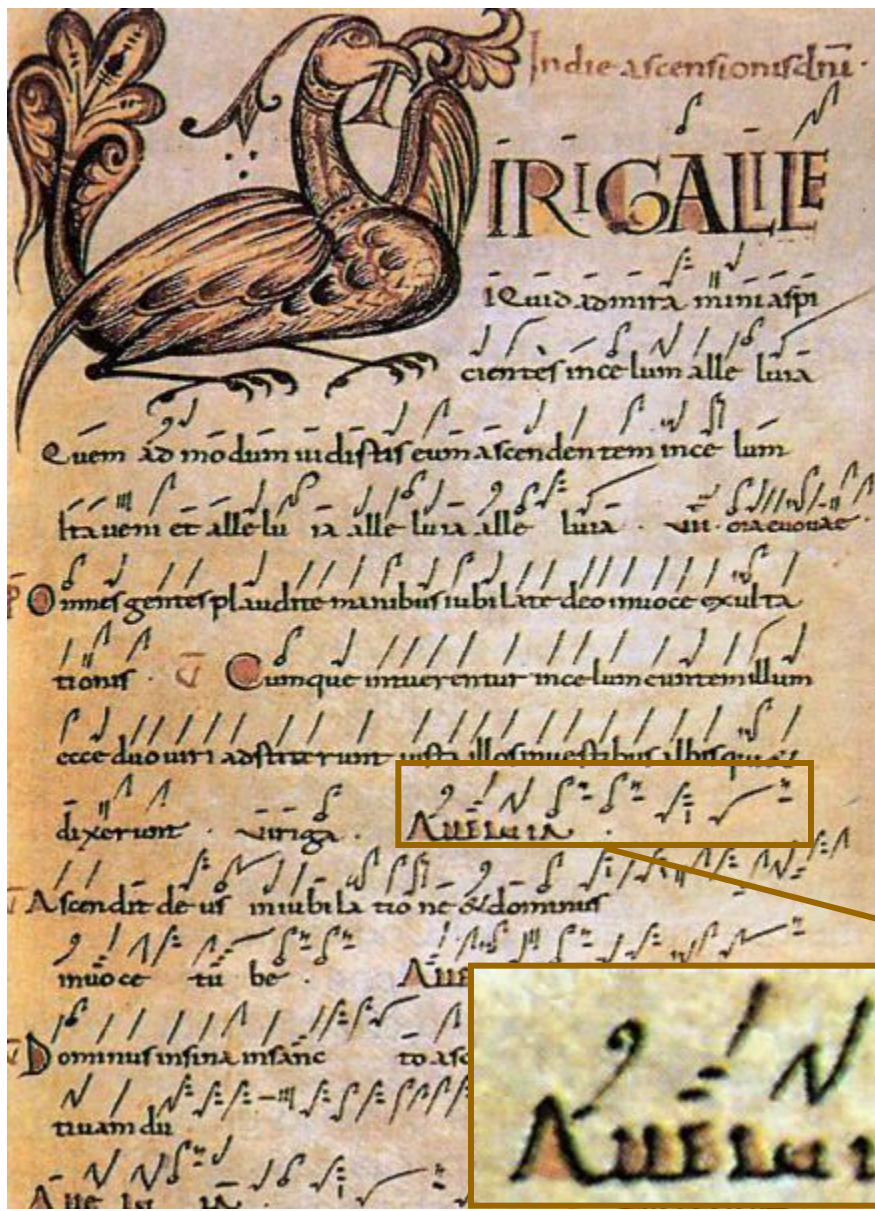 In die ascensionis dnī·
IRI GALILE
I Quid admira mini aspi
cientes in celum alle luia
Quem ad modum uidistis eum ascendentem in ce lum
Ita ueni et alle lu ia alle luia alle luia ·
Omnes gentes plaudite manibus iubilate deo in uoce exulta
tionis · V Cumque intuerentur in celum euntem illum
ecce duo uiri adstiterunt iuxta illos in uestibus albis qui et
dixerunt · uiri ga · Alleluia ·
V Ascendit de us in iubila tio ne & dominus
in uoce tu be · Alle
V Dominus in sina in sanc to asc
tiuam du
Alle lu ia
Allelui